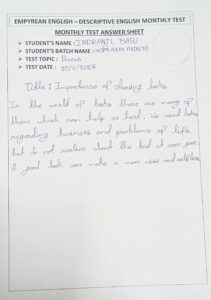 EMPYREAN ENGLISH – DESCRIPTIVE ENGLISH MONTHLY TEST
MONTHLY TEST ANSWER SHEET
➤ STUDENT'S NAME : INDRANIL BASU
➤ STUDENT'S BATCH NAME :
➤ TEST TOPIC :
➤ TEST DATE :
Title : Importance of choosing books
In the world of books there are many of
them which can help or hurt. We read books
regarding business and problems of life
but do not realise about the bad it can give.
A good book can make a man wise and